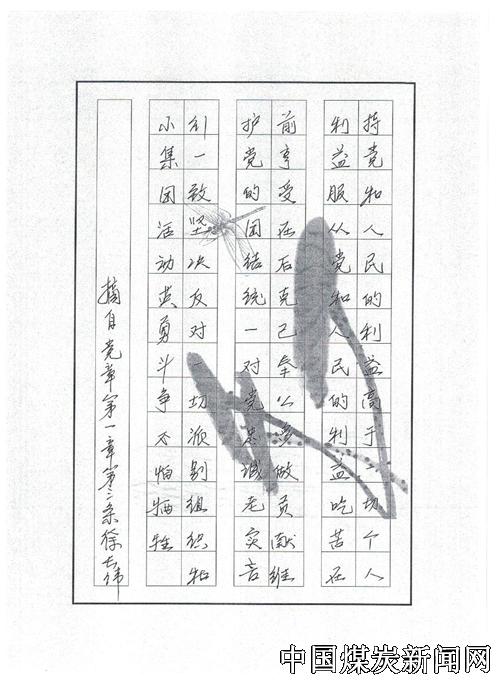 持党和人民的利益高于一切个人
利益服从党和人民的利益吃苦在
前享受在后克己奉公多做贡献维
护党的团结统一对党忠诚老实言
行一致坚决反对一切派别组织和
小集团活动英勇斗争不怕牺牲
摘自党章第一章第三条徐伟
中国煤炭新闻网